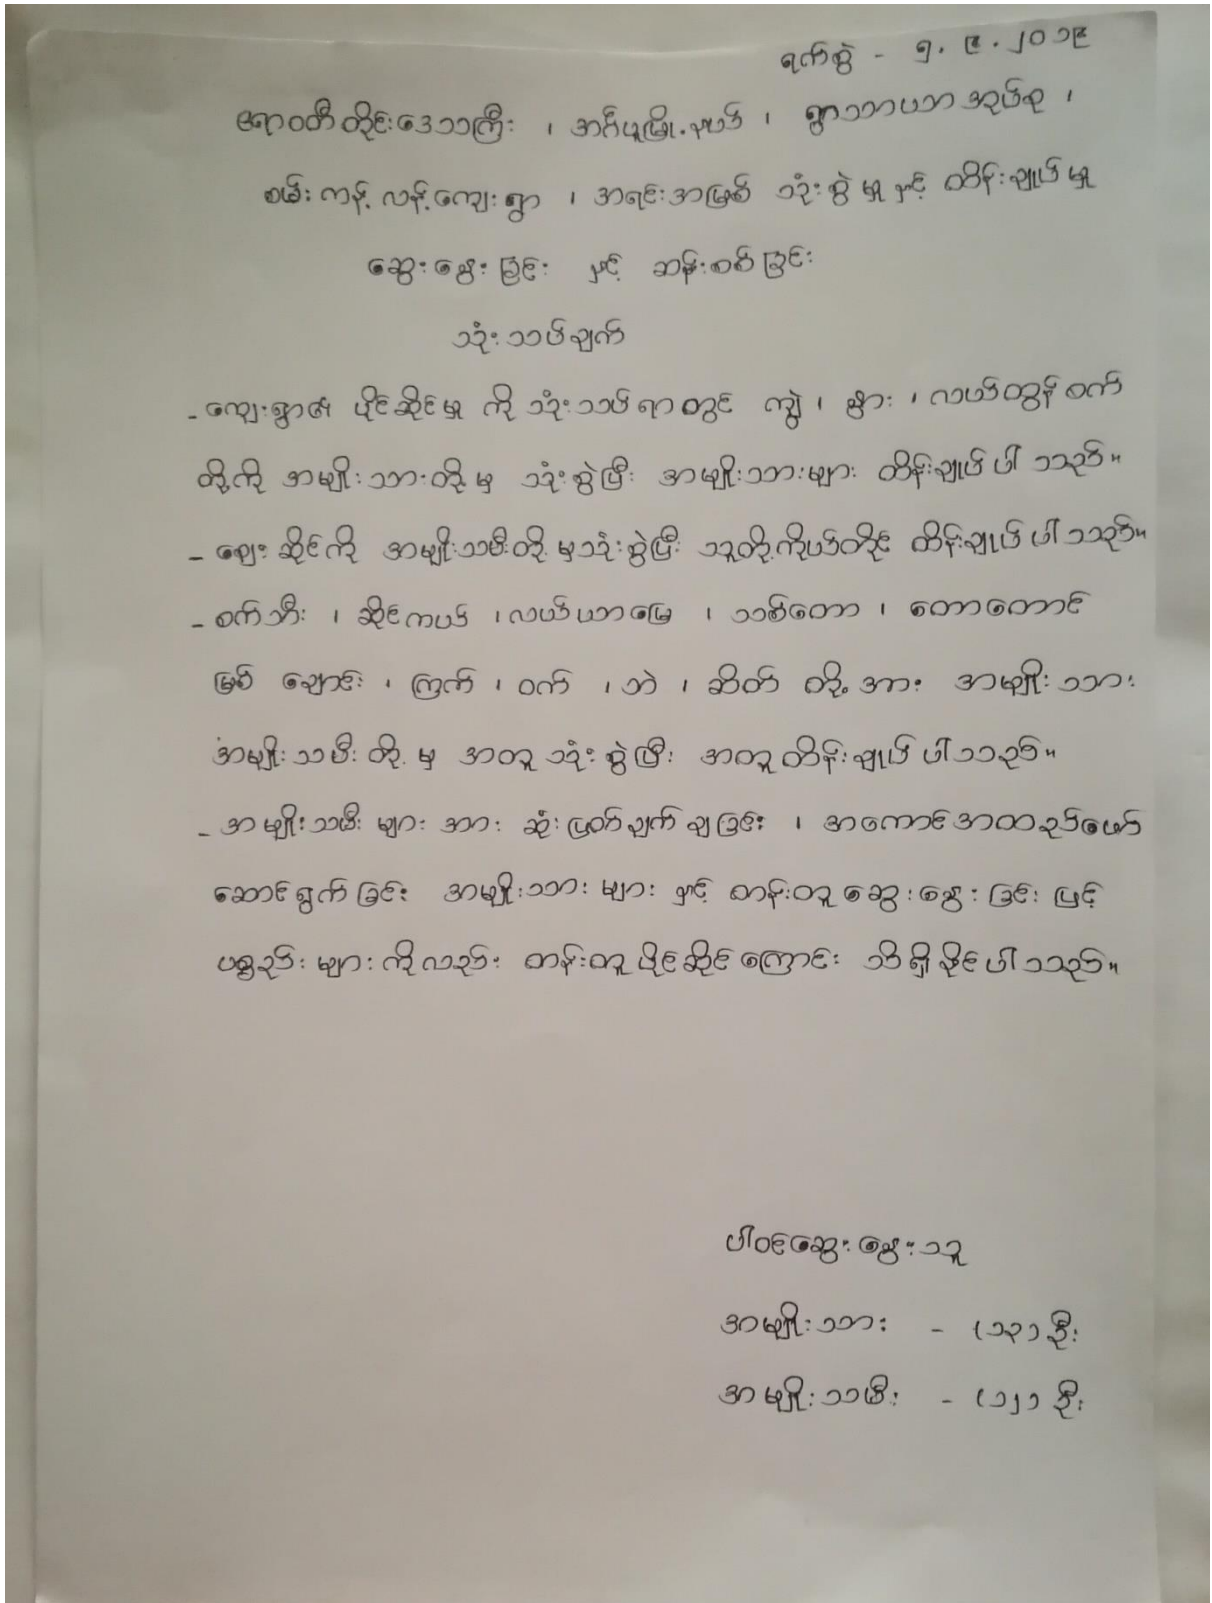 ရက်စွဲ - ၅.၉.၂၀၁၉
ဧရာဝတီတိုင်းဒေသကြီး ၊ အင်္ဂပူမြို့နယ် ၊ ရွာသာယာအုပ်စု ၊
စမ်းကန့်လန့်ကျေးရွာ ၊ အရင်းအမြစ် သုံးစွဲမှု နှင့် ထိန်းချုပ်မှု
ဆွေးနွေးခြင်း နှင့် ဆန်းစစ်ခြင်း
သုံးသပ်ချက်
- ကျေးရွာ၏ ပိုင်ဆိုင်မှု ကို သုံးသပ်ရာတွင် ကျွဲ ၊ နွား ၊ လယ်ထွန်စက်
တို့ကို အမျိုးသားတို့မှ သုံးစွဲပြီး အမျိုးသားများ ထိန်းချုပ်ပါသည်။
- ဈေးဆိုင်ကို အမျိုးသမီးတို့မှသုံးစွဲပြီး သူတို့ကိုယ်တိုင် ထိန်းချုပ်ပါသည်။
- စက်ဘီး ၊ ဆိုင်ကယ် ၊ လယ်ယာမြေ ၊ သစ်တော ၊ တောတောင်
မြစ်ချောင်း ၊ ကြက် ၊ ဝက် ၊ ဘဲ ၊ ဆိတ် တို့အား အမျိုးသား
အမျိုးသမီးတို့မှ အတူသုံးစွဲပြီး အတူထိန်းချုပ်ပါသည်။
- အမျိုးသမီးများအား ဆုံးဖြတ်ချက်ချခြင်း ၊ အကောင်အထည်ဖော်
ဆောင်ရွက်ခြင်း အမျိုးသားများနှင့် တန်းတူဆွေးနွေးခြင်းဖြင့်
ပစ္စည်းများကိုလည်း တန်းတူပိုင်ဆိုင်ကြောင်း သိရှိနိုင်ပါသည်။
ပါဝင်ဆွေးနွေးသူ
အမျိုးသား - (၁၃) ဦး
အမျိုးသမီး - (၁၂) ဦး